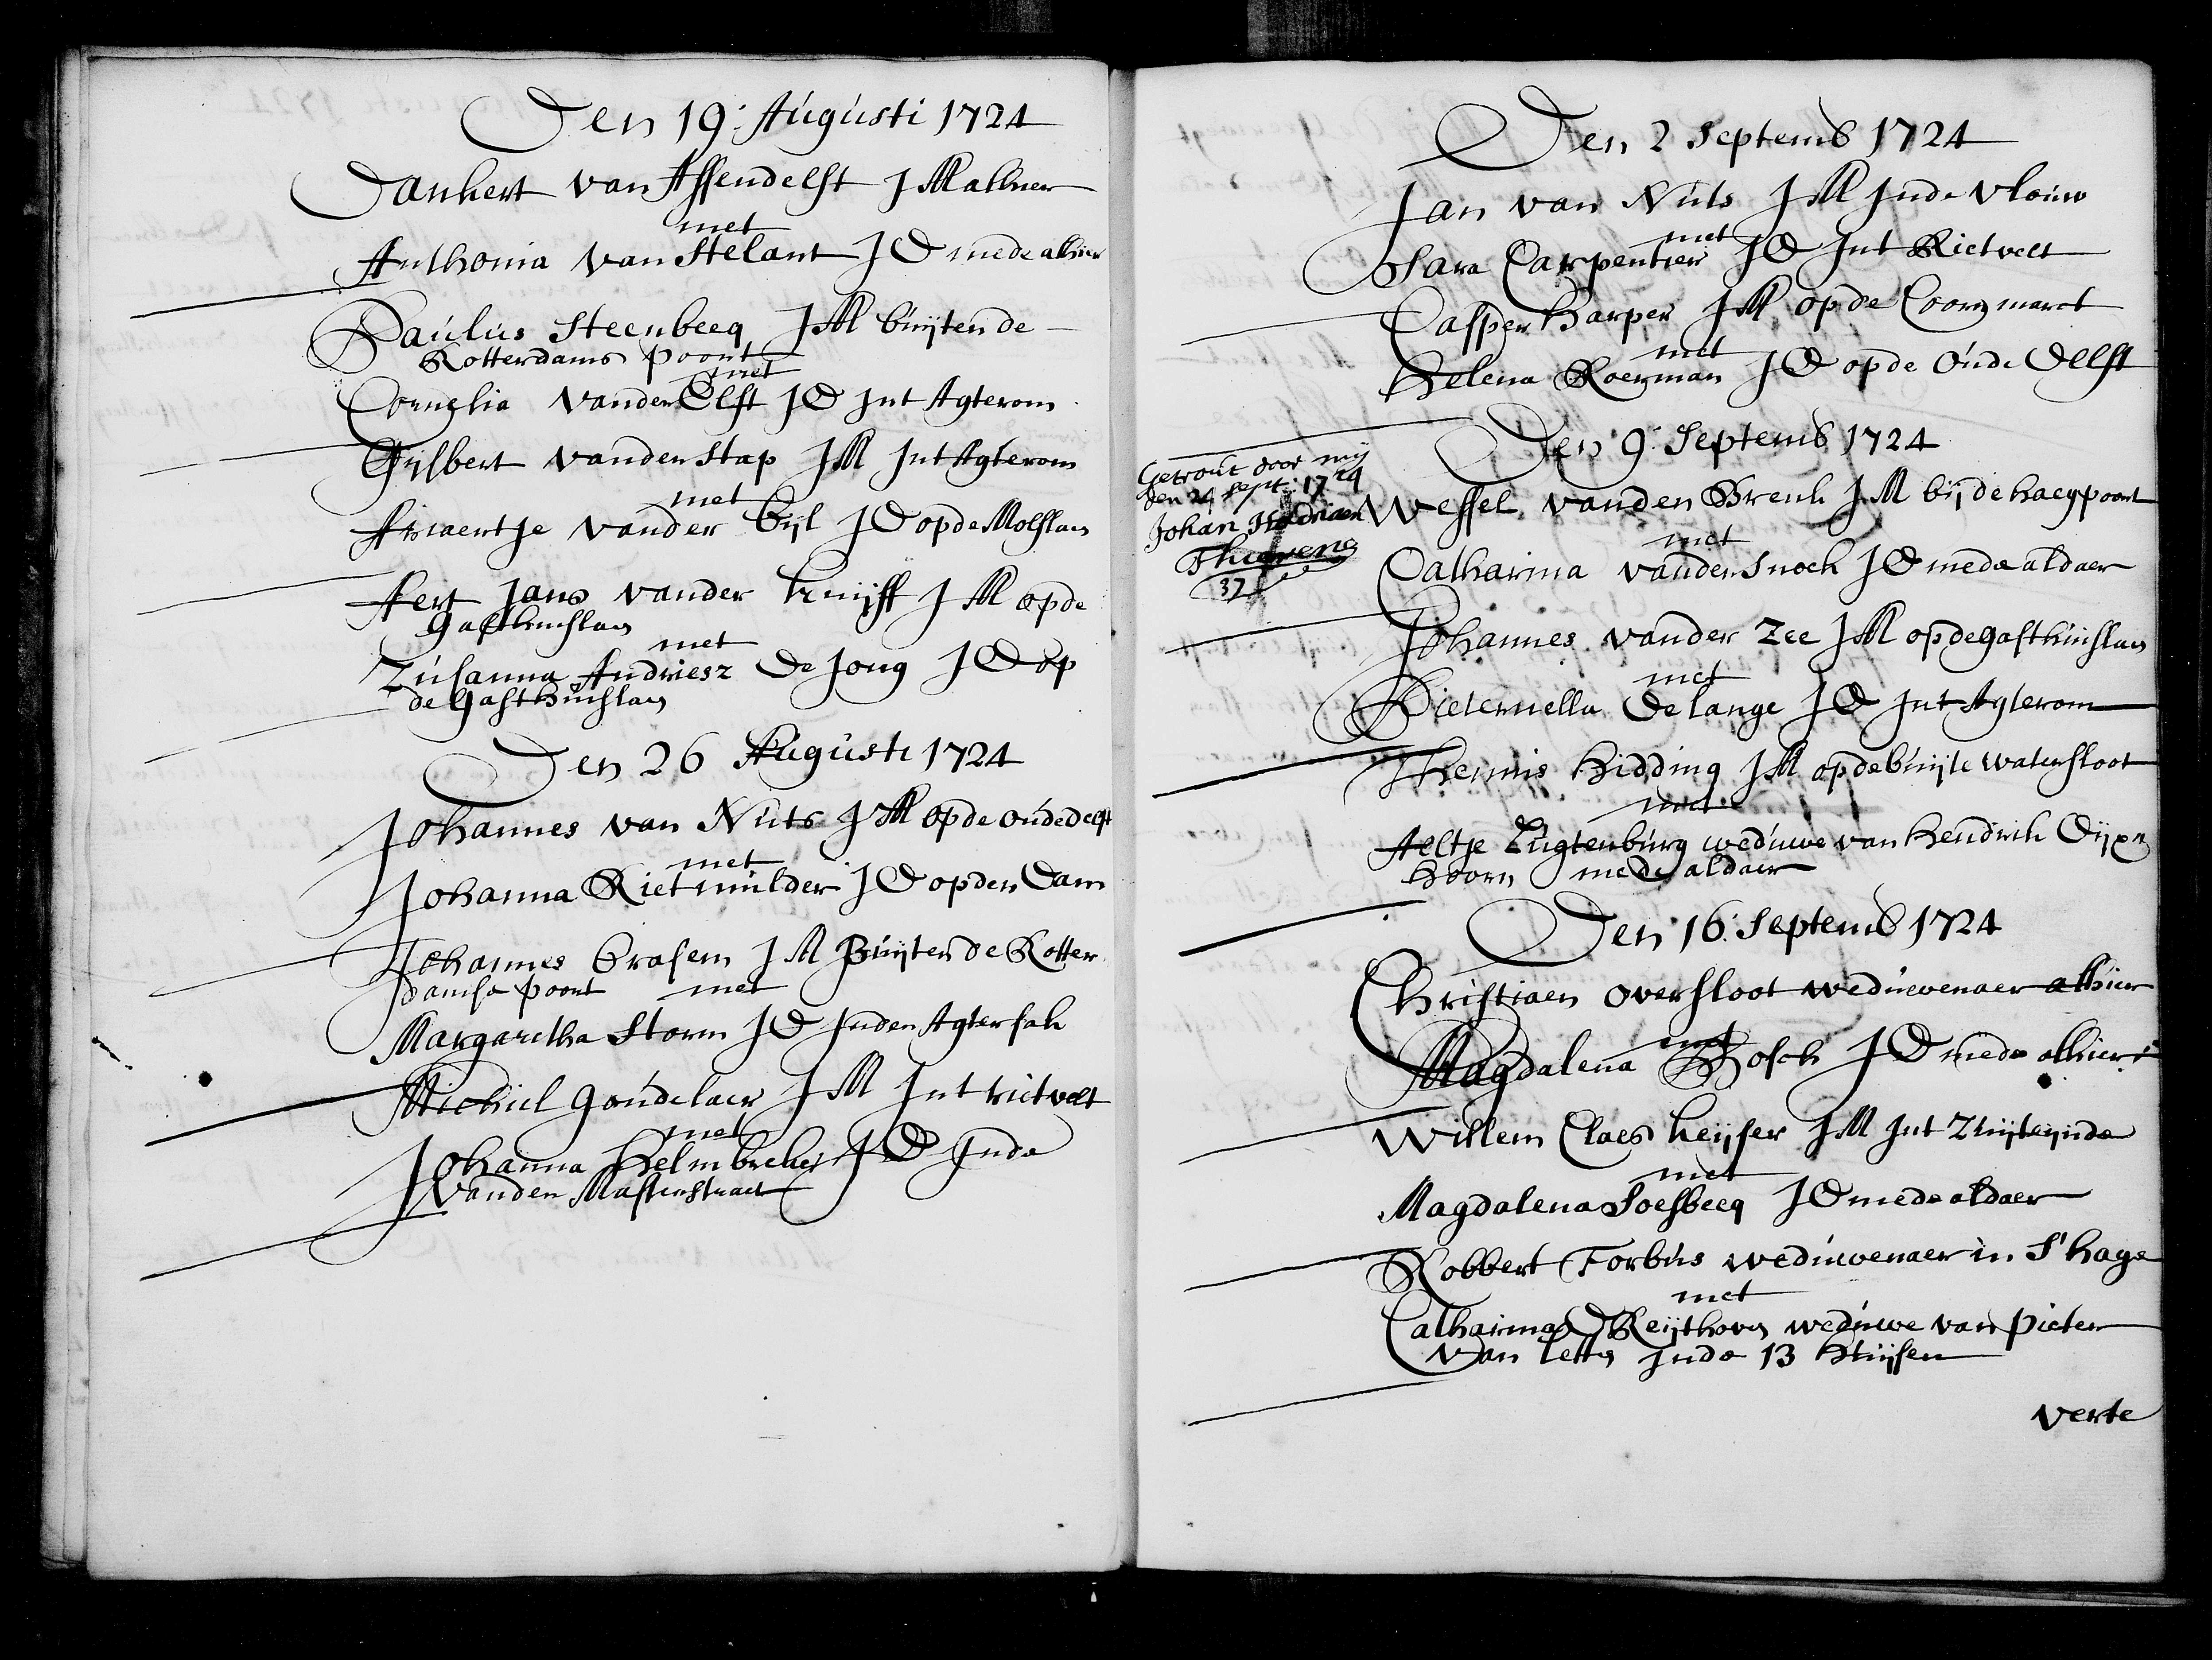 Den 19: Augusti 1724
Dankert van Assendelft J M alhier
met
Anthonia van Stelant J D mede alhier
Paulus Steenbeeq J M buijten de
Rotterdams poort
met
Cornelia vander Elst J D Int Agterom
Gijsbert vander Stap J M Int Agterom
met
Ariaentje vander Bijl J D op de Molslaen
Aert Jans vander Kruijff J M op de
Gasthuislaen
met
Zusanna Andriesz de Jong J D op
de Gasthuislaen
Den 26 Augusti 1724
Johannes van Nuts J M op de oude delft
met
Johanna Rietmulder J D op den Dam
Johannes Crasem J M Buijten de Rotter
damse poort met
Margaretha Storm J D Inden Agtersak
Michiel Goudelaer J M Int rietvelt
met
Johanna Helmbreker J D Inde
vanden Mastenstraet
Den 2 Septemb 1724
Jan van Nuts J M Inde vlouw
met
Sara Carpentier J D Int Rietvelt
Casper Harper J M op de Coornmarct
met
Helena Koerman J D op de Oude Delft
Den 9: Septemb 1724
Getrout door mij
den 24 Sept: 1724
Johan Hadriaen
37
Wessel vanden Brenk J M bij de haegpoort
met
Catharina vander Snoek J D mede aldaer
Johannes vander Zee J M op de gasthuislaen
met
Pieternella de Lange J D Int Agterom
Thennis Hidding J M op de buijte watersloot
met
Aeltje Lugtenburg weduwe van Hendrik Dijxs
Hoorn mede aldaer
Den 16: Septemb 1724
Christiaen oversloot weduwenaer alhier
met
Magdalena Bosch J D mede alhier
Willem Claes Keijser J M Int Zuijteijnde
met
Magdalena Soesbeeq J D mede aldaer
Robbert Forbus weduwenaer in S'hage
met
Catharina Reijthoven weduwe van pieter
van Letten Inde 13 Huijsen
verte